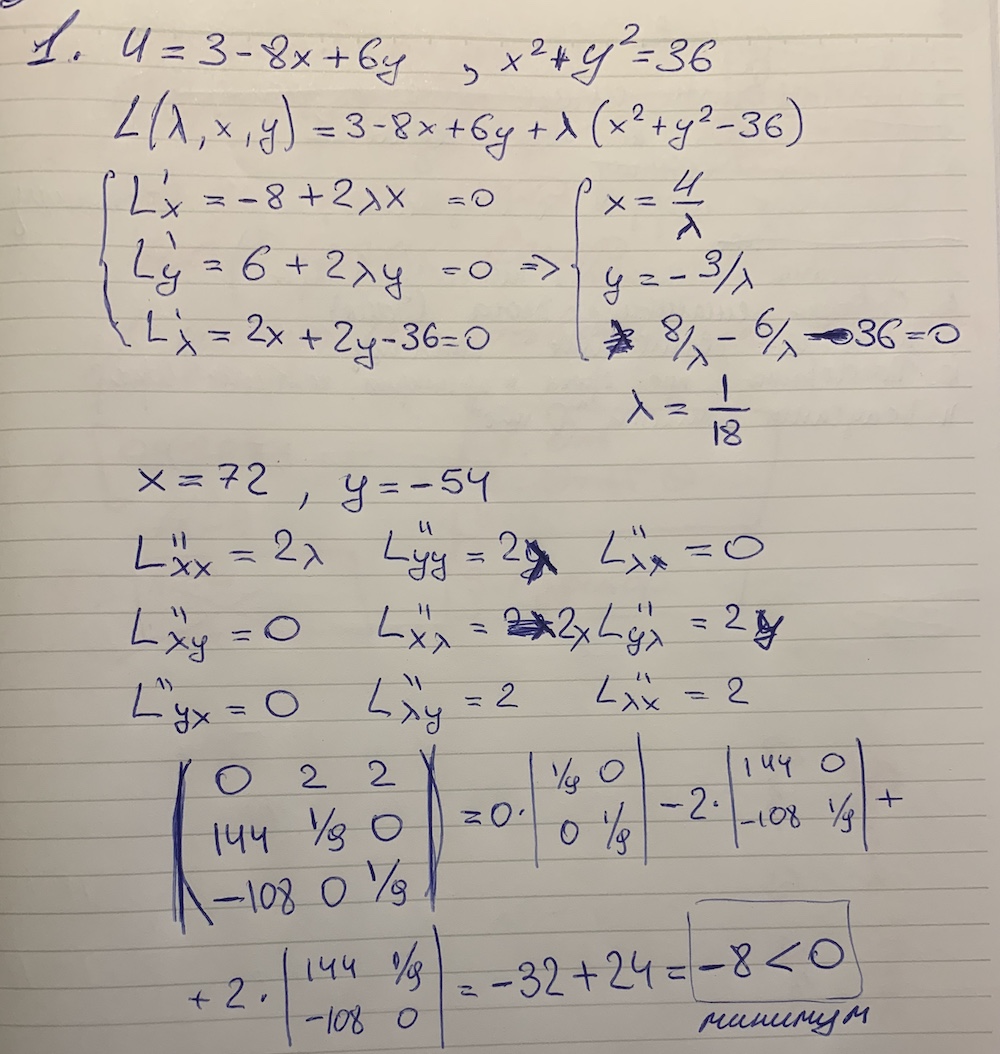 1. U = 3 - 8x + 6y , x² + y² = 36
L(λ, x, y) = 3 - 8x + 6y + λ(x² + y² - 36)
{ L'x = -8 + 2λx = 0
L'y = 6 + 2λy = 0
L'λ = 2x + 2y - 36 = 0
=> { x = 4/λ
y = -3/λ
8/λ - 6/λ - 36 = 0
λ = 1/18
x = 72 , y = -54
L''xx = 2λ L''yy = 2λ L''λλ = 0
L''xy = 0 L''xλ = 2x L''yλ = 2y
L''yx = 0 L''λy = 2 L''λx = 2
| 0 2 2 |
| 144 1/9 0 |
| -108 0 1/9 |
= 0 · | 1/9 0 |
| 0 1/9 |
- 2 · | 144 0 |
| -108 1/9 | +
+ 2 · | 144 1/9 |
| -108 0 |
= -32 + 24 = -8 < 0
минимум